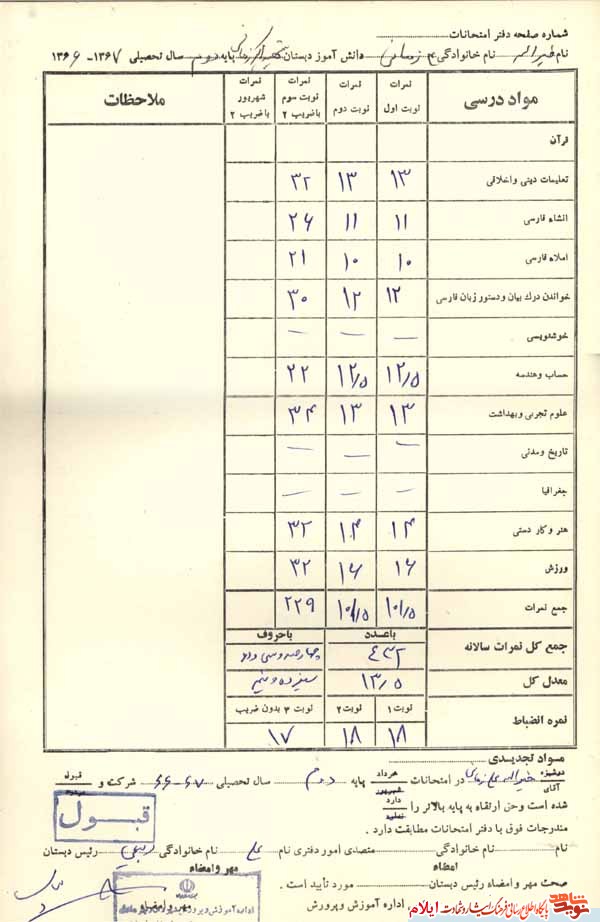 شماره صفحه دفتر امتحانات
نام خیراله نام خانوادگی علی زمانی دانش آموز دبستان پایه دوم سال تحصیلی ۱۳۶۷-۱۳۶۶
مواد درسی نمرات نوبت اول نمرات نوبت دوم نمرات نوبت سوم با ضریب ۲ نمرات شهریور با ضریب ۲ ملاحظات
قرآن
تعلیمات دینی واخلاقی ۱۳ ۱۳ ۳۲
انشاء فارسی ۱۱ ۱۱ ۲۶
املاء فارسی ۱۰ ۱۰ ۲۱
خواندن درک بیان ودستور زبان فارسی ۱۲ ۱۲ ۳۰
خوشنویسی — — —
حساب وهندسه ۱۲/۵ ۱۲/۵ ۲۲
علوم تجربی وبهداشت ۱۳ ۱۳ ۳۴
تاریخ ومدنی — — —
جغرافیا — — —
هنر وکار دستی ۱۴ ۱۴ ۳۲
ورزش ۱۶ ۱۶ ۳۲
جمع نمرات ۱۰۱/۵ ۱۰۱/۵ ۲۲۹
باعدد باحروف
جمع کل نمرات سالانه ۴۳۲ چهارصدوسی ودو
معدل کل ۱۳/۵ سیزده ونیم
نوبت ۱ نوبت ۲ نوبت ۳ بدون ضریب
نمره انضباط ۱۸ ۱۸ ۱۷
مواد تجدیدی
دوشیزه آقای خیراله علی زمانی در امتحانات خرداد شهریور پایه دوم سال تحصیلی ۶۷-۶۶ شرکت و قبول مردود
شده است وحق ارتقاء به پایه بالاتر را دارد ندارد
مندرجات فوق با دفتر امتحانات مطابقت دارد .
قبول
نام نام خانوادگی متصدی امور دفتری نام علی نام خانوادگی رئیس دبستان
امضاء مهر وامضاء
صحت مهر وامضاء رئیس دبستان مورد تأیید است .
مهر وامضاء اداره آموزش و پرورش
نوید شاهد
پایگاه اطلاع رسانی فرهنگ ایثار و شهادت ایلام